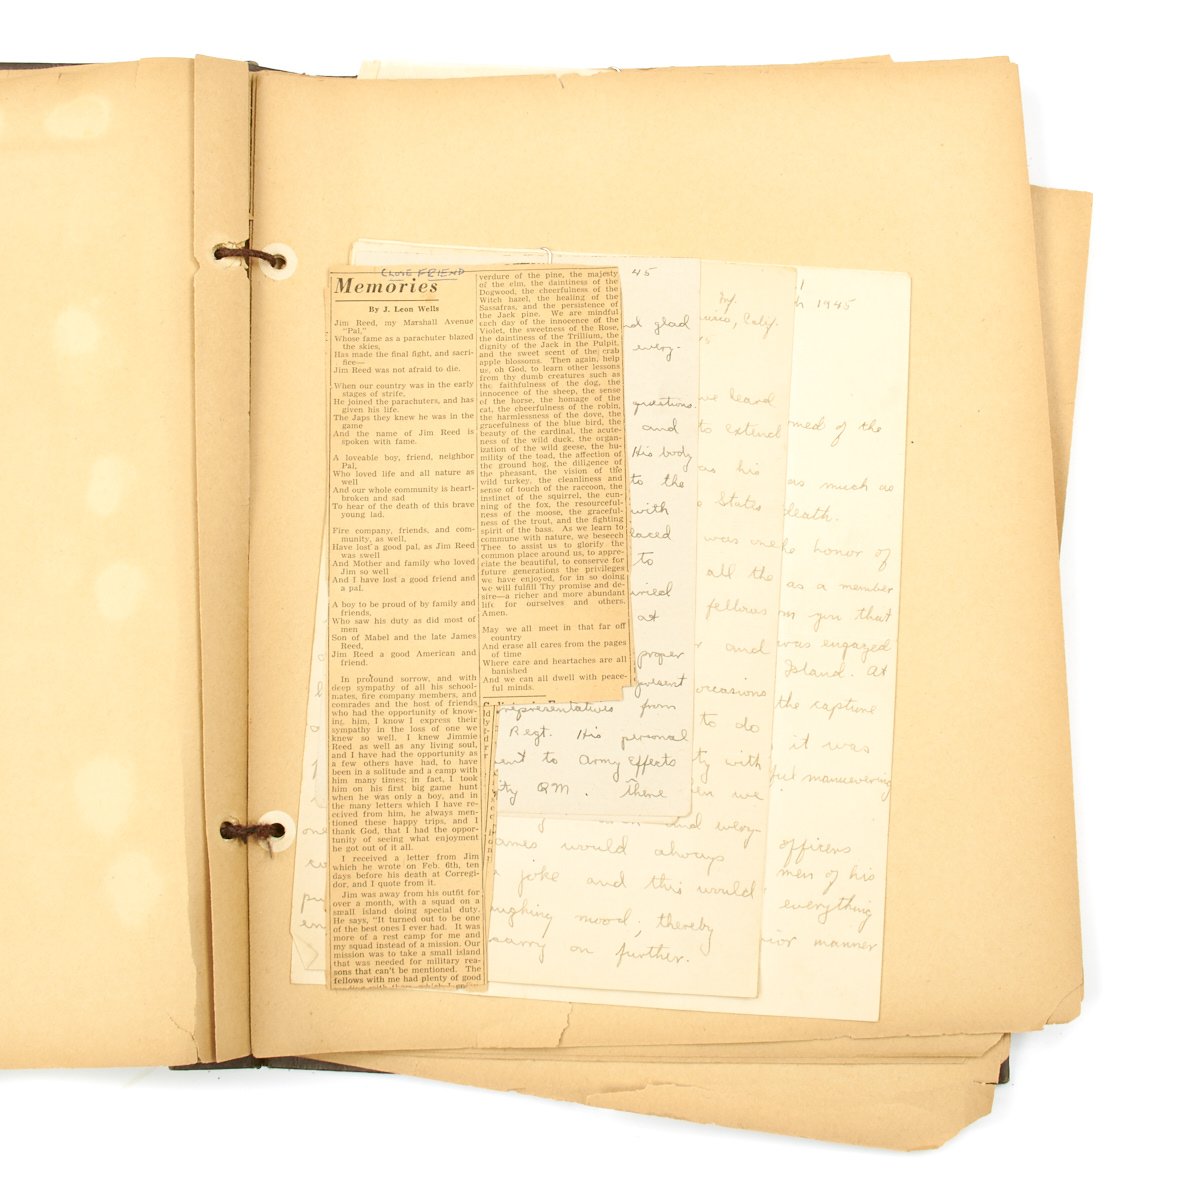 CLOSE FRIEND
Memories
By J. Leon Wells
Jim Reed, my Marshall Avenue
"Pal,"
Whose fame as a parachuter blazed
the skies,
Has made the final fight, and sacri-
fice—
Jim Reed was not afraid to die.
When our country was in the early
stages of strife,
He joined the parachuters, and has
given his life.
The Japs they knew he was in the
game
And the name of Jim Reed is
spoken with fame.
A loveable boy, friend, neighbor
Pal,
Who loved life and all nature as
well
And our whole community is heart-
broken and sad
To hear of the death of this brave
young lad.
Fire company, friends, and com-
munity, as well,
Have lost a good pal, as Jim Reed
was swell
And Mother and family who loved
Jim so well
And I have lost a good friend and
a pal.
A boy to be proud of by family and
friends,
Who saw his duty as did most of
men
Son of Mabel and the late James
Reed,
Jim Reed a good American and
friend.
In profound sorrow, and with
deep sympathy of all his school-
mates, fire company members, and
comrades and the host of friends
who had the opportunity of know-
ing, him, I know I express their
sympathy in the loss of one we
knew so well. I knew Jimmie
Reed as well as any living soul,
and I have had the opportunity as
a few others have had, to have
been in a solitude and a camp with
him many times; in fact, I took
him on his first big game hunt
when he was only a boy, and in
the many letters which I have re-
ceived from him, he always men-
tioned these happy trips, and I
thank God, that I had the oppor-
tunity of seeing what enjoyment
he got out of it all.
I received a letter from Jim
which he wrote on Feb. 6th, ten
days before his death at Corregi-
dor, and I quote from it.
Jim was away from his outfit for
over a month, with a squad on a
small island doing special duty.
He says, "It turned out to be one
of the best ones I ever had. It was
more of a rest camp for me and
my squad instead of a mission. Our
mission was to take a small island
that was needed for military rea-
sons that can't be mentioned. The
fellows with me had plenty of good
verdure of the pine, the majesty
of the elm, the daintiness of the
Dogwood, the cheerfulness of the
Witch hazel, the healing of the
Sassafras, and the persistence of
the Jack pine. We are mindful
each day of the innocence of the
Violet, the sweetness of the Rose,
the daintiness of the Trillium, the
dignity of the Jack in the Pulpit,
and the sweet scent of the crab
apple blossoms. Then again, help
us, oh God, to learn other lessons
from thy dumb creatures such as
the faithfulness of the dog, the
innocence of the sheep, the sense
of the horse, the homage of the
cat, the cheerfulness of the robin,
the harmlessness of the dove, the
gracefulness of the blue bird, the
beauty of the cardinal, the acute-
ness of the wild duck, the organ-
ization of the wild geese, the hu-
mility of the toad, the affection of
the ground hog, the diligence of
the pheasant, the vision of the
wild turkey, the cleanliness and
sense of touch of the raccoon, the
instinct of the squirrel, the cun-
ning of the fox, the resourceful-
ness of the moose, the graceful-
ness of the trout, and the fighting
spirit of the bass. As we learn to
commune with nature, we beseech
Thee to assist us to glorify the
common place around us, to appre-
ciate the beautiful, to conserve for
future generations the privileges
we have enjoyed, for in so doing
we will fulfill Thy promise and de-
sire—a richer and more abundant
life for ourselves and others.
Amen.
May we all meet in that far off
country
And erase all cares from the pages
of time
Where care and heartaches are all
banished
And we can all dwell with peace-
ful minds.
45
glad
every-
questions.
and
His body
to the
with
laced
to
at
proper
present
representatives from
Regt. His personal
to Army Effects
QM. There
Calif.
heard
to extend
as his
States
was one
all the
fellows
and
occasions
to do
with
we
and every-
would always
joke and this would
mood; thereby
carry on further.
1945
of the
as much as
death.
honor of
as a member
you that
was engaged
Island. At
the capture
it was
maneuvering
officers
men of his
everything
manner